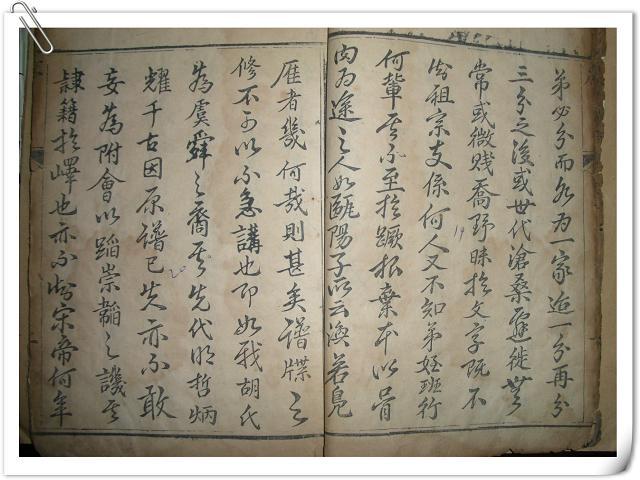 弟必分而各为一家迨一分再分
三分之後或世代滄桑遷徙無
常或微贱喬野昧於文字既不
知祖宗支係何人又不知弟姪班行
何輩其不至於蹶根棄本以骨
肉为途之人如歐陽子所云渙若鳧
雁者幾何哉則甚矣譜牒之
修不可以不急講也即如我胡氏
為虞舜之裔其先代明哲炳
耀千古因原譜已失亦不敢
妄為附會以蹈崇韜之譏其
隸籍於嶧也亦不知宋帝何年